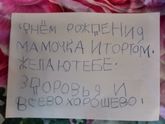 С ДНЁМ РОЖДЕНИЯ
МАМОЧКА И ТОРТОМ.
ЖЕЛАЮ ТЕБЕ
ЗДОРОВЬЯ И
ВСЕВО ХОРОШЕВО!